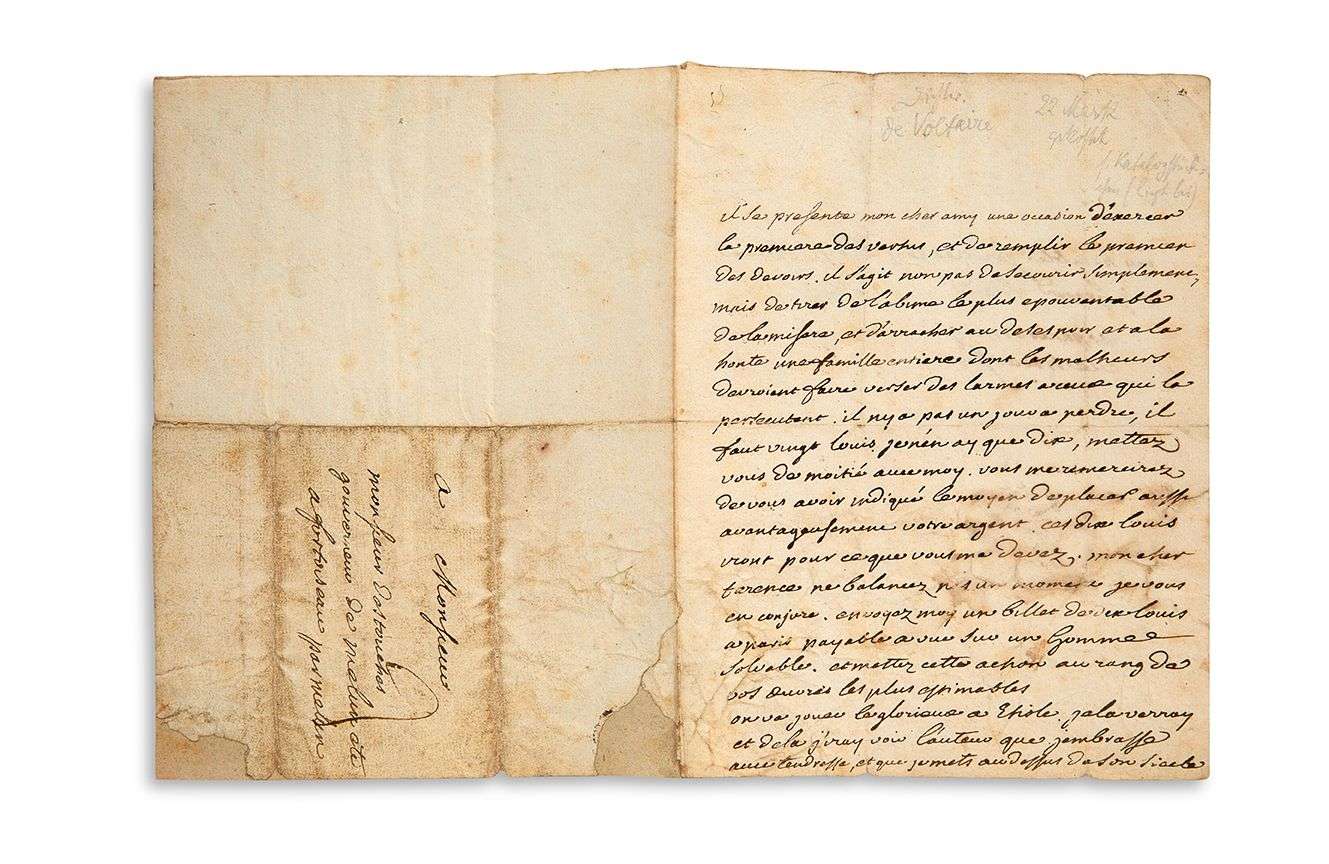 a Monsieur
monsieur Destouches
gouverneur de melun etc
a fortoiseau par melun
de Voltaire
22 Mark
gekostet
il se presente mon cher amy une occasion d'exercer
la premiere des vertus, et de remplir le premier
des devoirs. il s'agit non pas de secourir simplement,
mais de tirer de l'abime le plus epouvantable
de la misere, et d'arracher au desespoir et a la
honte une famille entiere dont les malheurs
devroient faire verser des larmes a ceux qui la
persecutent. il ny a pas un jour a perdre, il
faut vingt louis, je n'en ay que dix, mettez
vous de moitié avec moy. vous me remercirez
de vous avoir indiqué le moyen de placer aussi
avantageusement votre argent. ces dix louis
iront pour ce que vous me devez. mon cher
terence ne balancez pas un moment je vous
en conjure. envoyez moy un billet de dix louis
a paris payable a vue sur un homme
solvable. et mettez cette action au rang de
vos œuvres les plus estimables
on va jouer le glorieux a Etiole. je la verray
et de la j'iray voir l'auteur que j'embrasse
avec tendresse, et que je mets au dessus de son siecle